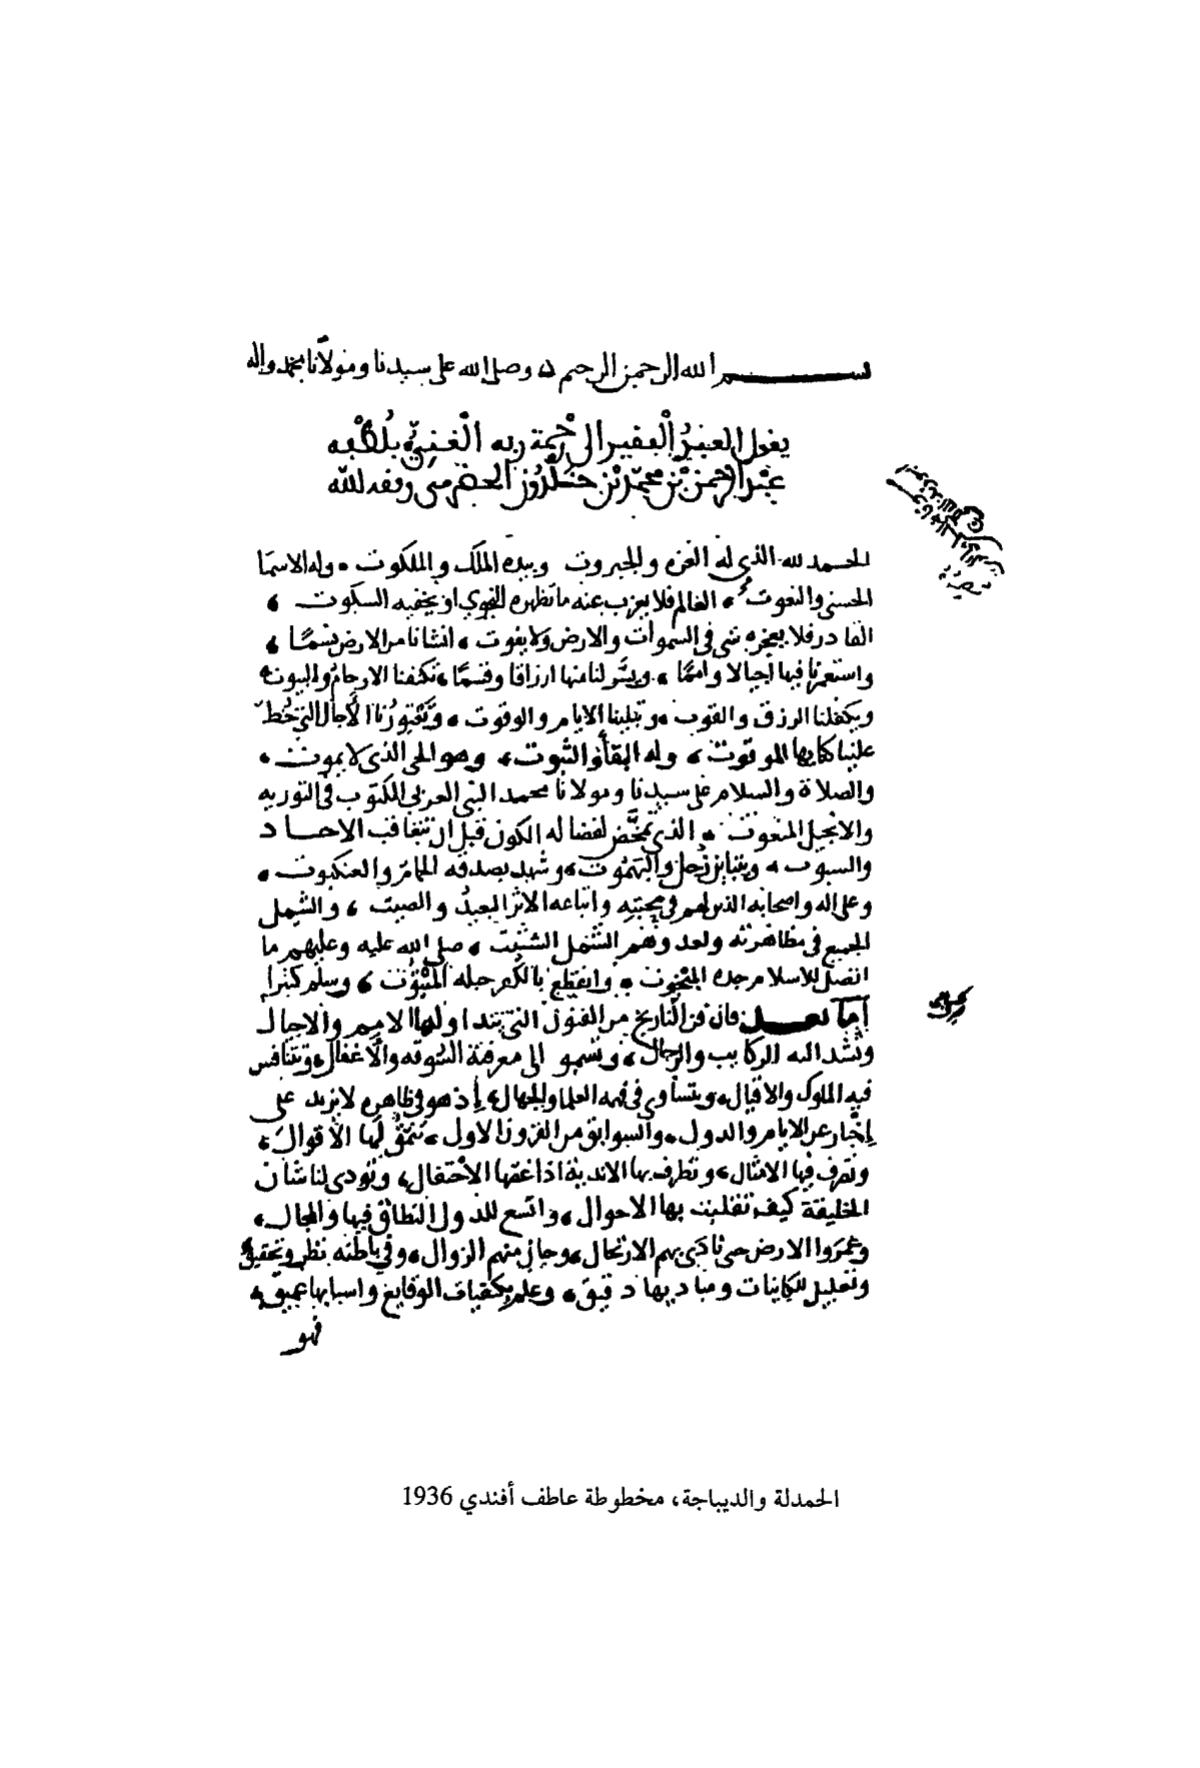 بسم الله الرحمن الرحيم وصلى الله على سيدنا ومولانا محمد واله
يقول العبد الفقير الى رحمة ربه الغني بلطفه
عبد الرحمن بن محمد بن خلدون الحضرمي وفقه الله
الحمد لله الذي له العزه والجبروت وبيده الملك والملكوت وله الاسما
الحسنى والنعوت العالم فلا يعزب عنه ما تظهره النجوى او يخفيه السكوت
القادر فلا يعجزه شي في السموات والارض ولا يفوت انشانا من الارض نسمًا
واستعمرنا فيها اجيالا وامما ويسر لنا منها ارزاقا وقسما تكنفنا الارحام والبيوت
ويكفلنا الرزق والقوت وتبلينا الايام والوقوت وتعتورنا الاجال التي خُط
علينا كتابها الموقوت وله البقا والثبوت وهو الحي الذي لا يموت
والصلاة والسلام على سيدنا ومولانا محمد النبي العربي المكتوب في التوريه
والانجيل المنعوت الذي تمخض لفصاله الكون قبل ان تتعاقب الاحاد
والسبوت ويتباين زحل والبهموت وشهد بصدقه الحمام والعنكبوت
وعلى اله واصحابه الذين لهم في محبته واتباعه الاثر البعيد والصيت والشمل
الجميع في مظاهرته ولعدوهم الشمل الشتيت صلى الله عليه وعليهم ما
اتصل للاسلام جده المبخوت وانقطع بالكفر حبله المبتوت وسلم كثيرا
اما بعد فان فن التاريخ من الفنون التي يتداولها الامم والاجيال
وتشد اليه الركايب والرحال وتسمو الى معرفته السوقه والاغفال وتتنافس
فيه الملوك والاقيال ويتساوى في فهمه العلما والجهال إذ هو في ظاهره لا يزيد على
إخبار عن الايام والدول والسوابق من القرون الاول تنمق لها الاقوال
وتصرف فيها الامثال وتطرف بها الاندية اذا غصها الاحتفال وتودي لنا شان
الخليقة كيف تقلبت بها الاحوال واتسع للدول النطاق فيها والمجال
وعمروا الارض حتى نادى بهم الارتحال وحان منهم الزوال وفي باطنه نظر وتحقيق
وتعليل للكاينات ومباديها دقيق وعلم بكيفيات الوقايع واسبابها عميق
فهو
الحمدلة والديباجة، مخطوطة عاطف أفندي 1936